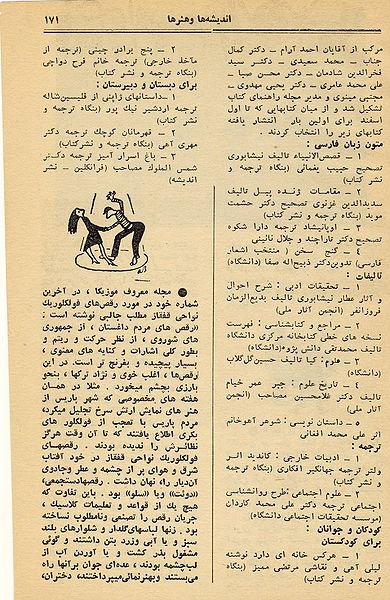 اندیشه‌ها وهنرها
۱۷۱
مرکب از آقایان احمد آرام – دکتر کمال
جناب – محمد سعیدی – دکتر سید
فخرالدین شادمان – دکتر محسن صبا –
علی محمد عامری – دکتر یحیی مهدوی –
مجتبی مینوی و مدیر مجله راهنمای کتاب
تشکیل شد و از میان کتابهایی که تا اول
اسفند برای اولین بار انتشار یافته
کتابهای زیر را انتخاب کردند.
متون زبان فارسی :
۱ – قصص‌الانبیاء تالیف نیشابوری
تصحیح حبیب یغمائی (بنگاه ترجمه و
نشر کتاب)
۲ – مقامات ژنده پیل تالیف
سدیدالدین غزنوی تصحیح دکتر حشمت
موید (بنگاه ترجمه و نشر کتاب)
۳ – اوپانیشاد ترجمه دارا شکوه
تصحیح دکتر تاراچند و جلال نائینی
۴ – گنج سخن (منتخب اشعار
فارسی) تدوین دکتر ذبیح‌اله صفا (دانشگاه)
تالیفات :
۱ – تحقیقات ادبی : شرح احوال
و آثار عطار نیشابوری تالیف بدیع‌الزمان
فروزانفر (انجمن آثار ملی)
۲ – مراجع و کتابشناسی : فهرست
نسخه های خطی کتابخانه مرکزی دانشگاه
تالیف محمدتقی دانش پژوه(دانشگاه)
۳ – علوم : گیا تالیف حسین‌گل‌گلاب
(دانشگاه)
۴ – تاریخ علوم : جبر عمر خیام
تالیف دکتر غلامحسین مصاحب (انجمن
آثار ملی)
۵ – داستان نویسی : شوهر آهوخانم
اثر علی محمد افغانی
ترجمه :
۱ – ادبیات خارجی : کاندید اثر
ولتر ترجمه جهانگیر افکاری (بنگاه ترجمه
و نشر کتاب)
۲ – علوم اجتماعی :طرح روانشناسی
اجتماعی ترجمه دکتر علی محمد کاردان
(موسسه تحقیقات اجتماعی دانشگاه)
کودکان و جوانان :
برای کودکستان
۱ – هرکس خانه ای دارد نوشته
لیلی آهی و نقاشی مرتضی ممیز (بنگاه
ترجمه و نشر کتاب)
۲ – پنج برادر چینی (ترجمه از
مآخذ خارجی) ترجمه خانم فرح دواچی
(بنگاه ترجمه و نشر کتاب)
برای دبستان و دبیرستان :
۱ –داستانهای ژاپنی از فلیسین‌شاله
ترجمه اردشیر نیک پور (بنگاه ترجمه و
نشر کتاب)
۲ – قهرمانان کوچک ترجمه دکتر
مهری آهی (بنگاه ترجمه و نشرکتاب)
۳ – باغ اسرار آمیز ترجمه دکتر
شمس الملوک مصاحب (فرانکلین – نشر
اندیشه)
● مجله معروف موزیکا ، در آخرین
شماره خود در مورد رقص‌های فولکلوریک
نواحی قفقاز مطلب جالبی نوشته است :
«رقص های مردم داغستان ، از جمهوری
های شوروی ، از نظر حرکت و ریتم و
بطور کلی اشارات و کنایه های معنوی ،
بسیار پیچیده و بغرنج تر است. در این
رقص‌ها ، اغلب خوی و نژاد ترکها ، بنحو
بارزی بچشم میخورد . مثلا در همان
هفته های مخصوصی که شهر پاریس از
هنر های نمایش ارتش سرخ تجلیل میکرد،
مردم پاریس با تعجب از فولکلور های
بکری اطلاع یافتند که تا آن وقت هرگز
نظائرش را ندیده بودند . رقصهای
فولکلوریک نواحی قفقاز در خود آفتاب
شرق و هوای پر از چشمه و عطر وجادوی
آن‌دیار را، نهان داشت . رقصها،دستجمعی،
«دوئت» ویا «سلو» بود. باین تفاوت که
هیچ یک از قواعد و تعلیمات کلاسیک ،
جریان رقص را تصنعی ونامطلوب نساخته
بود. زنها لباسهای‌گلدار و شلوارهای بلند
سبز و یا آبی وزرد بتن داشتند و گوئی
مشغول بذر کشت و یا آوردن آب از
لب‌چشمه بودند، عده‌ای جوان برآنها راه
می‌بستند وبهنرنمائی‌میپرداختند، دختران،